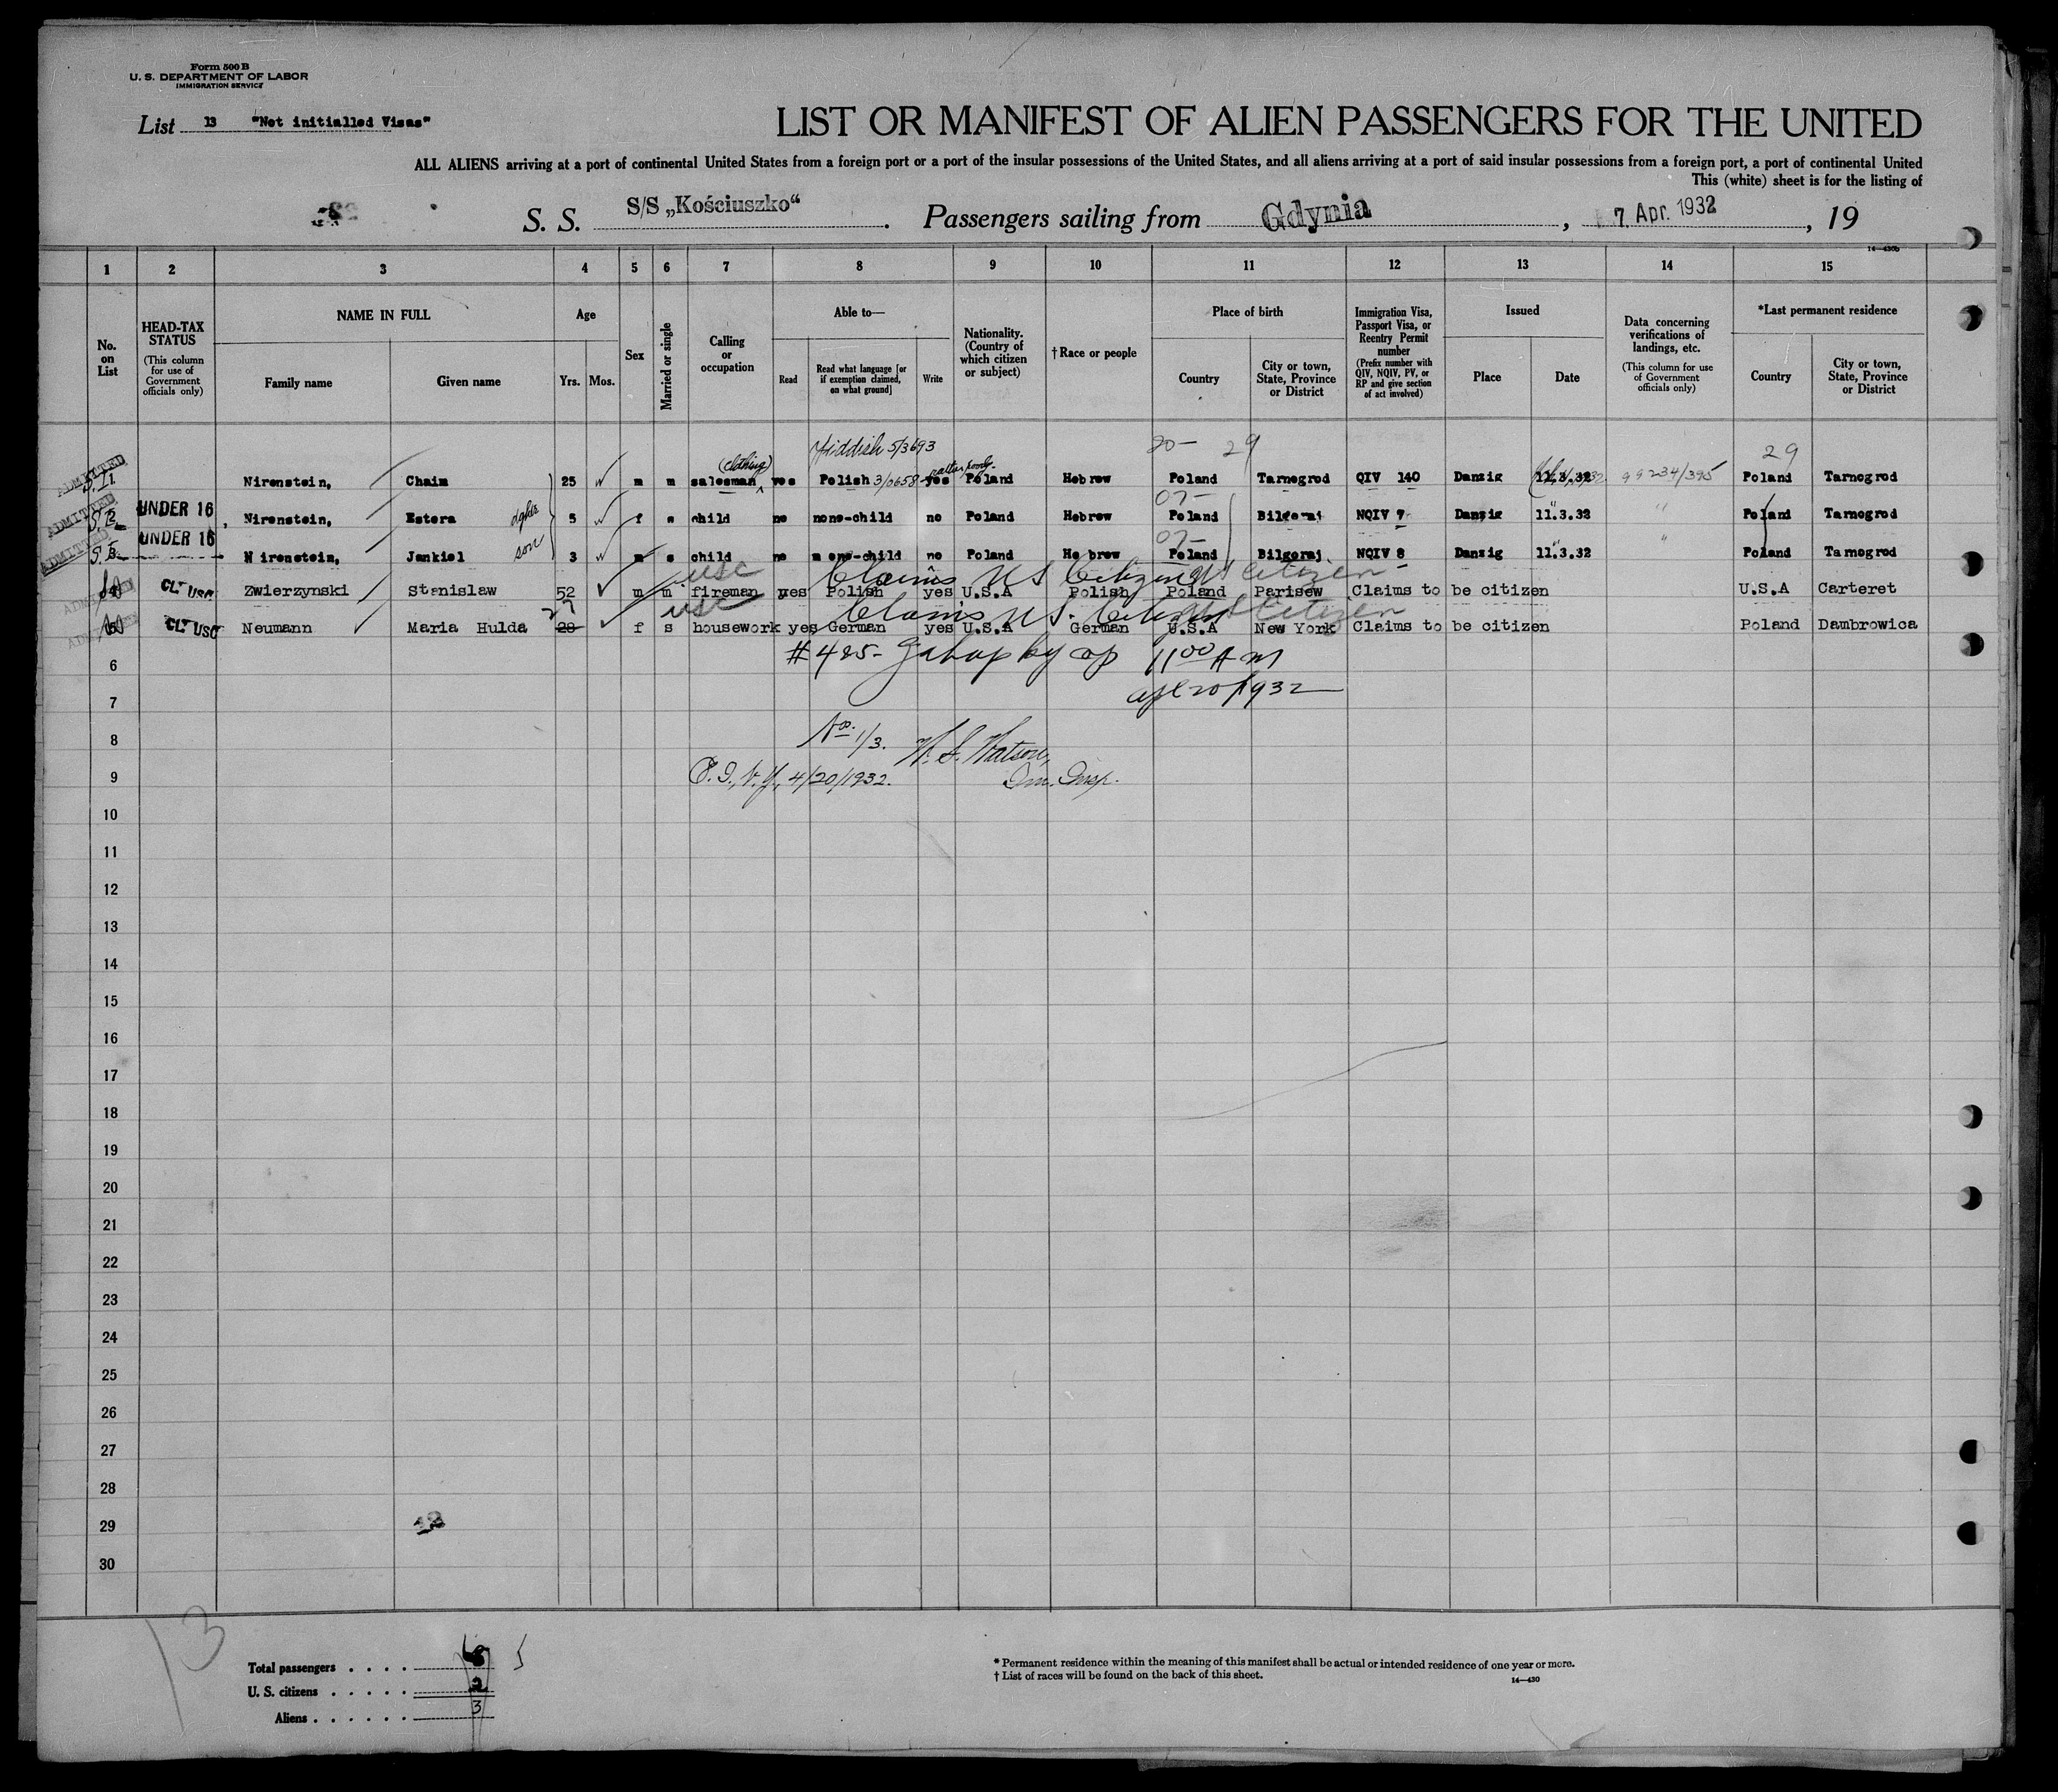 Form 500 B
U. S. DEPARTMENT OF LABOR
IMMIGRATION SERVICE
List 13 "Not initialled Visas"
LIST OR MANIFEST OF ALIEN PASSENGERS FOR THE UNITED
ALL ALIENS arriving at a port of continental United States from a foreign port or a port of the insular possessions of the United States, and all aliens arriving at a port of said insular possessions from a foreign port, a port of continental United
This (white) sheet is for the listing of
S. S. S/S „Kościuszko“. Passengers sailing from Gdynia, 7. Apr. 1932, 19
14—430b
1 2 3 4 5 6 7 8 9 10 11 12 13 14 15
No. on List
HEAD-TAX STATUS (This column for use of Government officials only)
NAME IN FULL Family name Given name
Age Yrs. Mos.
Sex
Married or single
Calling or occupation
Able to— Read Read what language [or if exemption claimed, on what ground] Write
Nationality. (Country of which citizen or subject)
†Race or people
Place of birth Country City or town, State, Province or District
Immigration Visa, Passport Visa, or Reentry Permit number (Prefix number with QIV, NQIV, PV, or RP and give section of act involved)
Issued Place Date
Data concerning verifications of landings, etc. (This column for use of Government officials only)
*Last permanent residence Country City or town, State, Province or District
Yiddish 5/3693 20— 29 29
(clothing)
ADMITTED Nirenstein, Chaim 25 m m salesman yes Polish 3/0658 yes Poland Hebrew Poland Tarnogrod QIV 140 Danzig 11.3.32 99234/395 Poland Tarnogrod
07—
ADMITTED UNDER 16 Nirenstein, Estera dghtr 5 f s child no none-child no Poland Hebrew Poland Bilgoraj NQIV 7 Danzig 11.3.32 " Poland Tarnogrod
07—
ADMITTED UNDER 16 Nirenstein, Jankiel son 3 m s child no none-child no Poland Hebrew Poland Bilgoraj NQIV 8 Danzig 11.3.32 " Poland Tarnogrod
USC Claims US Citizen US Citizen
CLT USC Zwierzynski Stanislaw 52 m m fireman yes Polish yes U.S.A Polish Poland Parisew Claims to be citizen U.S.A Carteret
27 USC Claims US. Citizen US Citizen
CLT USC Neumann Maria Hulda 28 f s housework yes German yes U.S.A German U.S.A New York Claims to be citizen Poland Dambrowica
6 #485- by 11 00 AM
7 20/1932
8 Nos. 1/3. W. S. Watson,
9 E. I., N. Y., 4/20/1932. Im. Insp.
10
11
12
13
14
15
16
17
18
19
20
21
22
23
24
25
26
27
28
29
30
13
Total passengers . . . . 5
U. S. citizens . . . . . 2
Aliens . . . . . . 3
* Permanent residence within the meaning of this manifest shall be actual or intended residence of one year or more.
† List of races will be found on the back of this sheet.
14—430